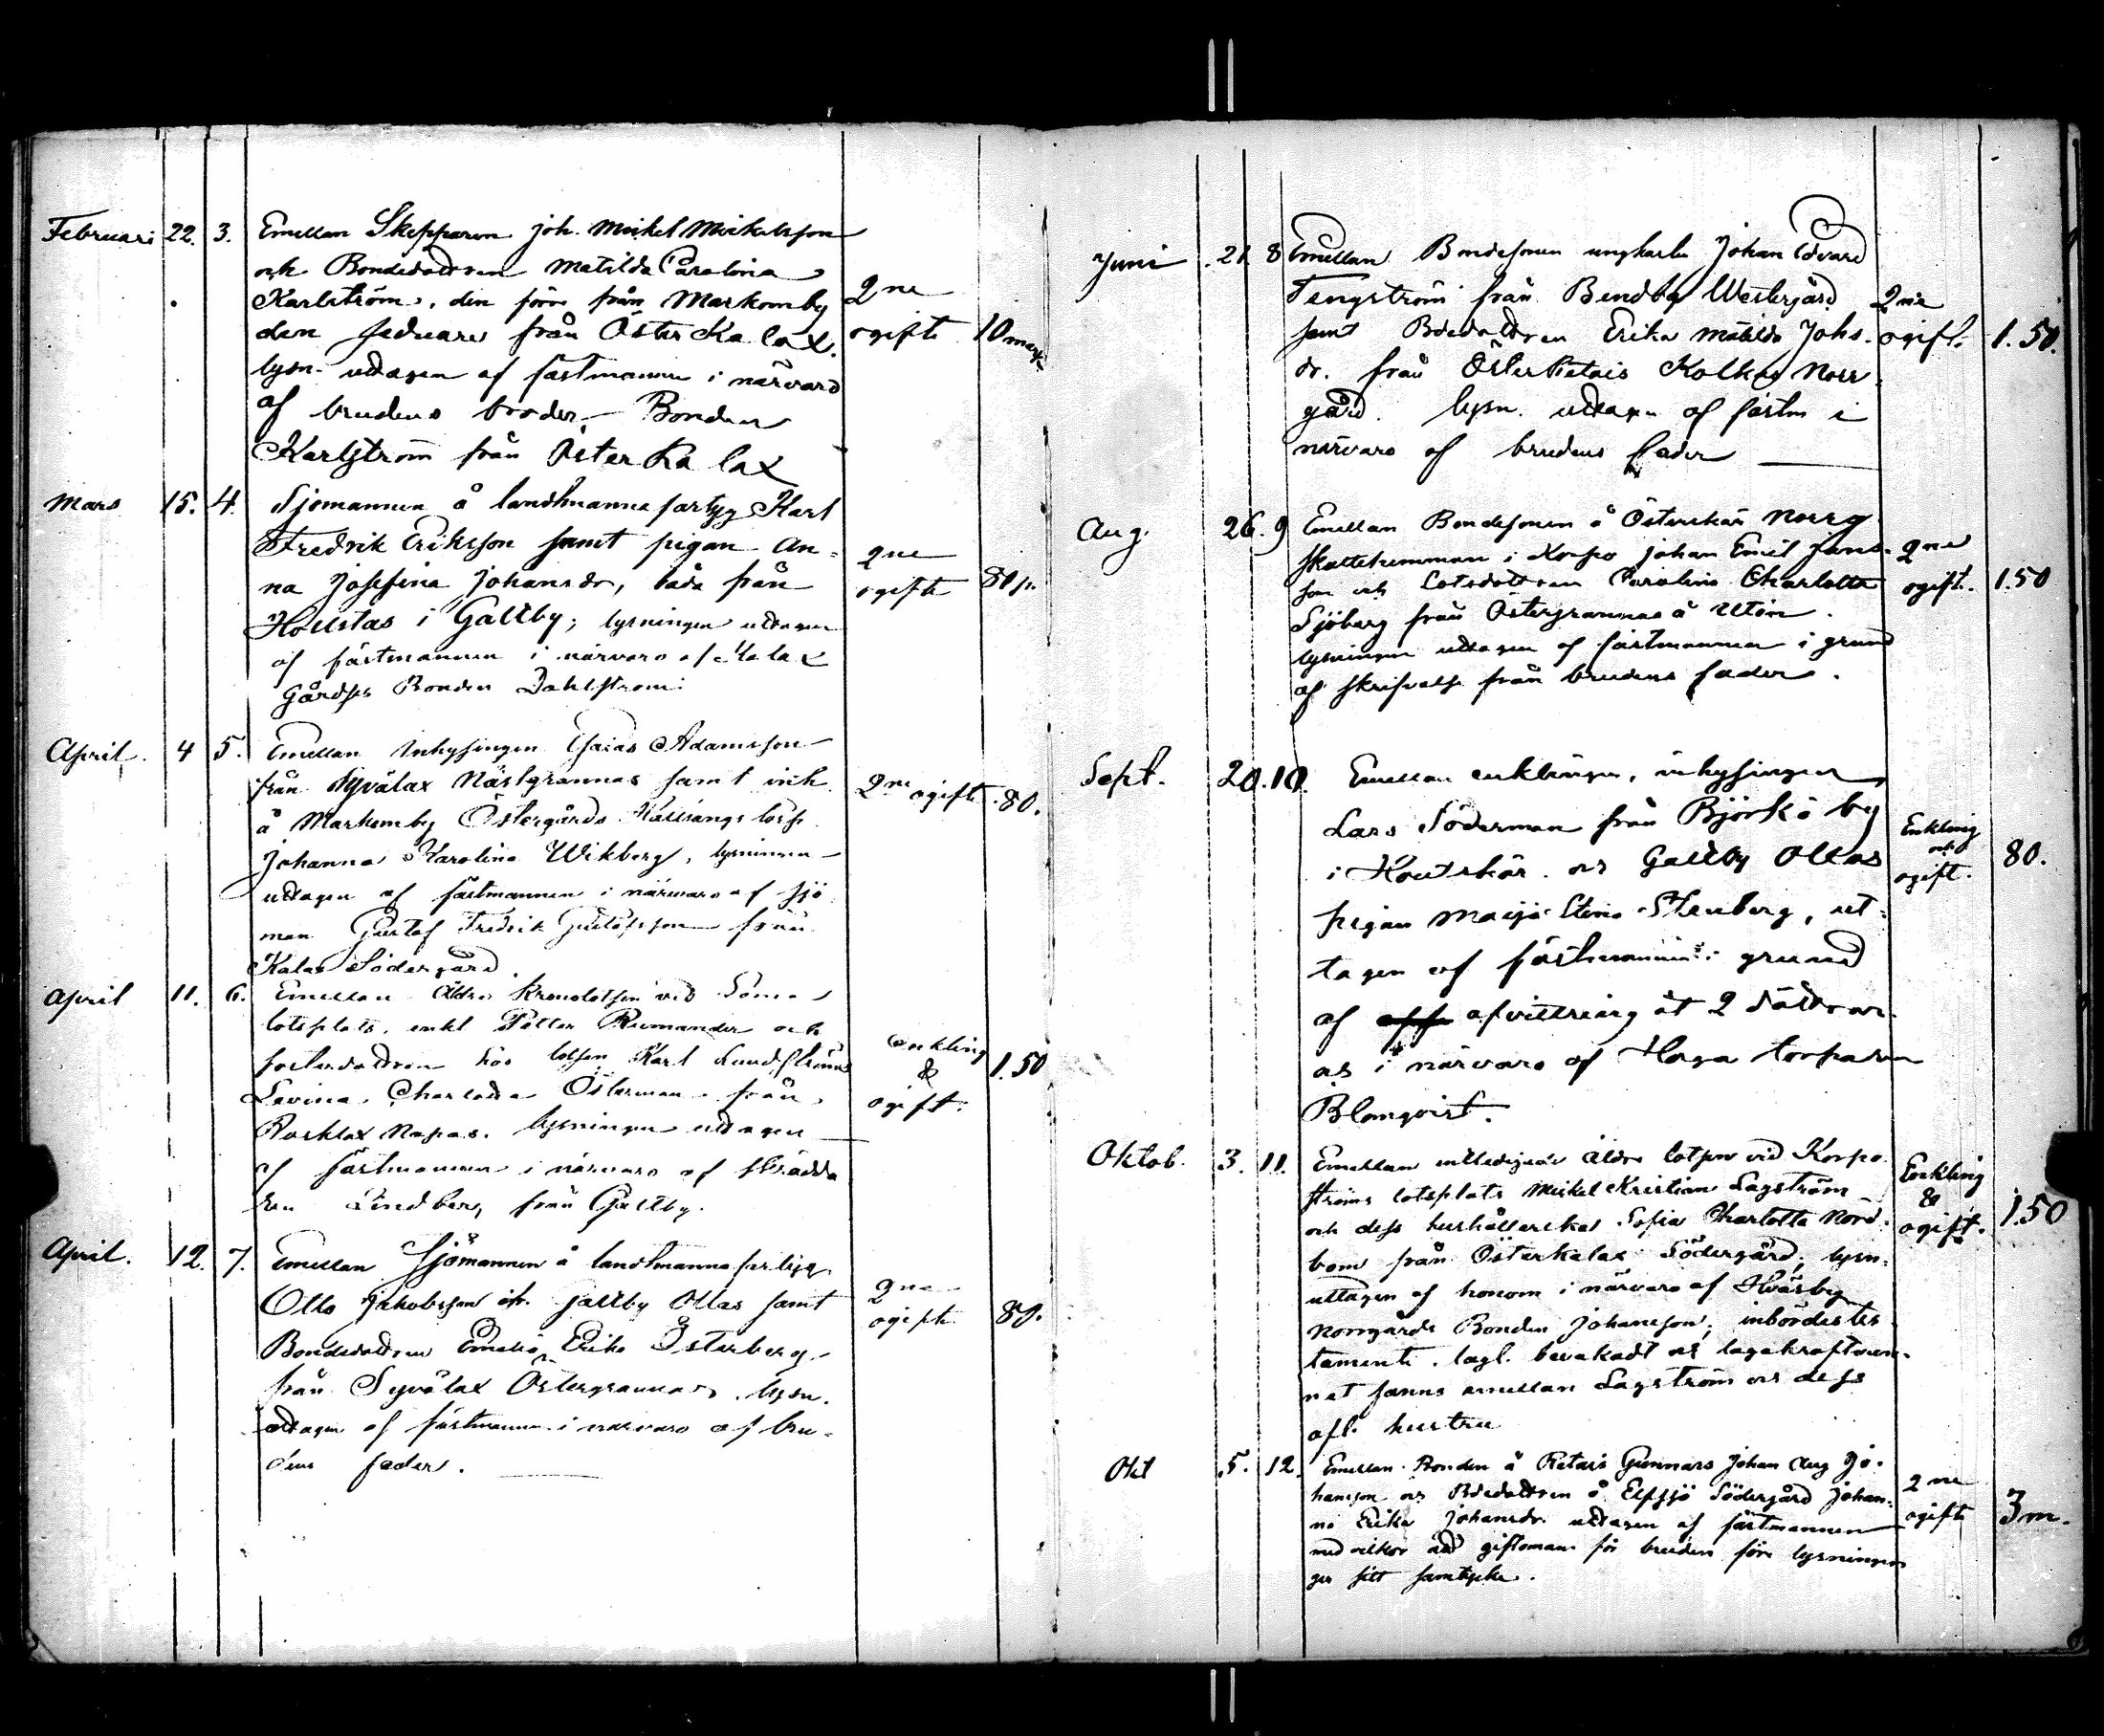 Februari 22. 3. Emellan Skepparen Joh. Mickel Mickelsson
och Bondedottren Matilda Carolina
Karlström, den förre från Markomby 2ne
den sednare från Österkalax. ogifte 10 mark
lysn. uttagen af fästmannen i närvaro
af brudens broder Bonden
Karlström från Österkalax
Mars 15. 4. Sjömannen å landtmannafartyg Karl
Fredrik Eriksson samt pigan An- 2ne
na Josefina Johansdr, båda från ogifte 80 p.
i Galtby; lysningen uttagen
af fästmannen i närvaro af Kalax
Gårdses Bonden Dahlström.
April. 4 5. Emellan Inhysingen Esaias Adamsson
från Syvälax Nästgrannas samt inh. 2ne ogifte 80.
å Markomby Östergårds
Johanna Karolina Wikberg, lysningen
uttagen af fästmannen i närvaro af sjö
man Gustaf Fredrik Gustafsson från
Kalax Södergård.
April 11. 6. Emellan Äldre Kronolotsen vid
lotsplats, enkl. Petter och enkling
fosterdottren hos lotsen Karl Lundströms & 1.50
Lovina Charlotta Österman från ogift.
Rosklax Napas. lysningen uttagen
af fästmannen i närvaro af skrädda
ren Lindberg från Galtby.
April. 12. 7. Emellan Sjömannen å landtmannafartyg
Otto Jakobsson fr. Galtby Ollas samt 2ne
Bondedottren Emelia Erika Österberg ogifte 80.
från Syvälax Östergrannas, lysn.
uttagen af fästmannen i närvaro af bru-
dens fader.
Juni 21 8 Emellan Bondesonen ungkarlen Johan Edvard
Tengström från Bendby Westergård 2ne
samt Bdedottren Erika Matilda Johs- ogift. 1.50.
dr. från Österretais Kolkas Norr
gård. lysn. uttagen af fästm i
närvaro af brudens fader
Aug. 26. 9 Emellan Bondesonen å Österskär Norrg
skattehemman i Korpo Johan Emil Jans- 2ne
son och Lotsdottren Carolina Charlotta ogift. 1.50
Sjöberg från Östergrannas å Utön.
lysningen uttagen af fästmannen i grund
af skrifvelse från brudens fader.
Sept. 20. 10. Emellan enklingen, inhysingen
Lars Söderman från Björkö by Enkling
i Houtskär och Galtby Ollas och 80.
pigan Maija Stina Stenberg, ut- ogift.
tagen af fästmannen i grund
af afvittring åt 2 döttrar
och i närvaro af Haga torparen
Blomqvist.
Oktob. 3. 11. Emellan äldre lotsen vid Korpo Enkling
ströms lotsplats Mickel Kristian Lagström &
och dess hushållerska Sofia Charlotta Nord- ogift. 1.50
bom från Österkalax Södergård, lysn.
uttagen af honom i närvaro af
Norrgårds Bonden Johansson; inbördes tes
tamente lagl. bevakadt och lagakraftvun-
net fanns emellan Lagström och dess
afl. hustru
Okt 5. 12. Emellan Bonden å Retais Gunnars Johan Aug Jo-
hansson och Bdedottren å Elfsjö Södergård Johan- 2ne
na Erika Johansdr. uttagen af fästmannen ogifte 3 m.
med vilkor att giftoman för bruden före lysningen
ger sitt samtycke.